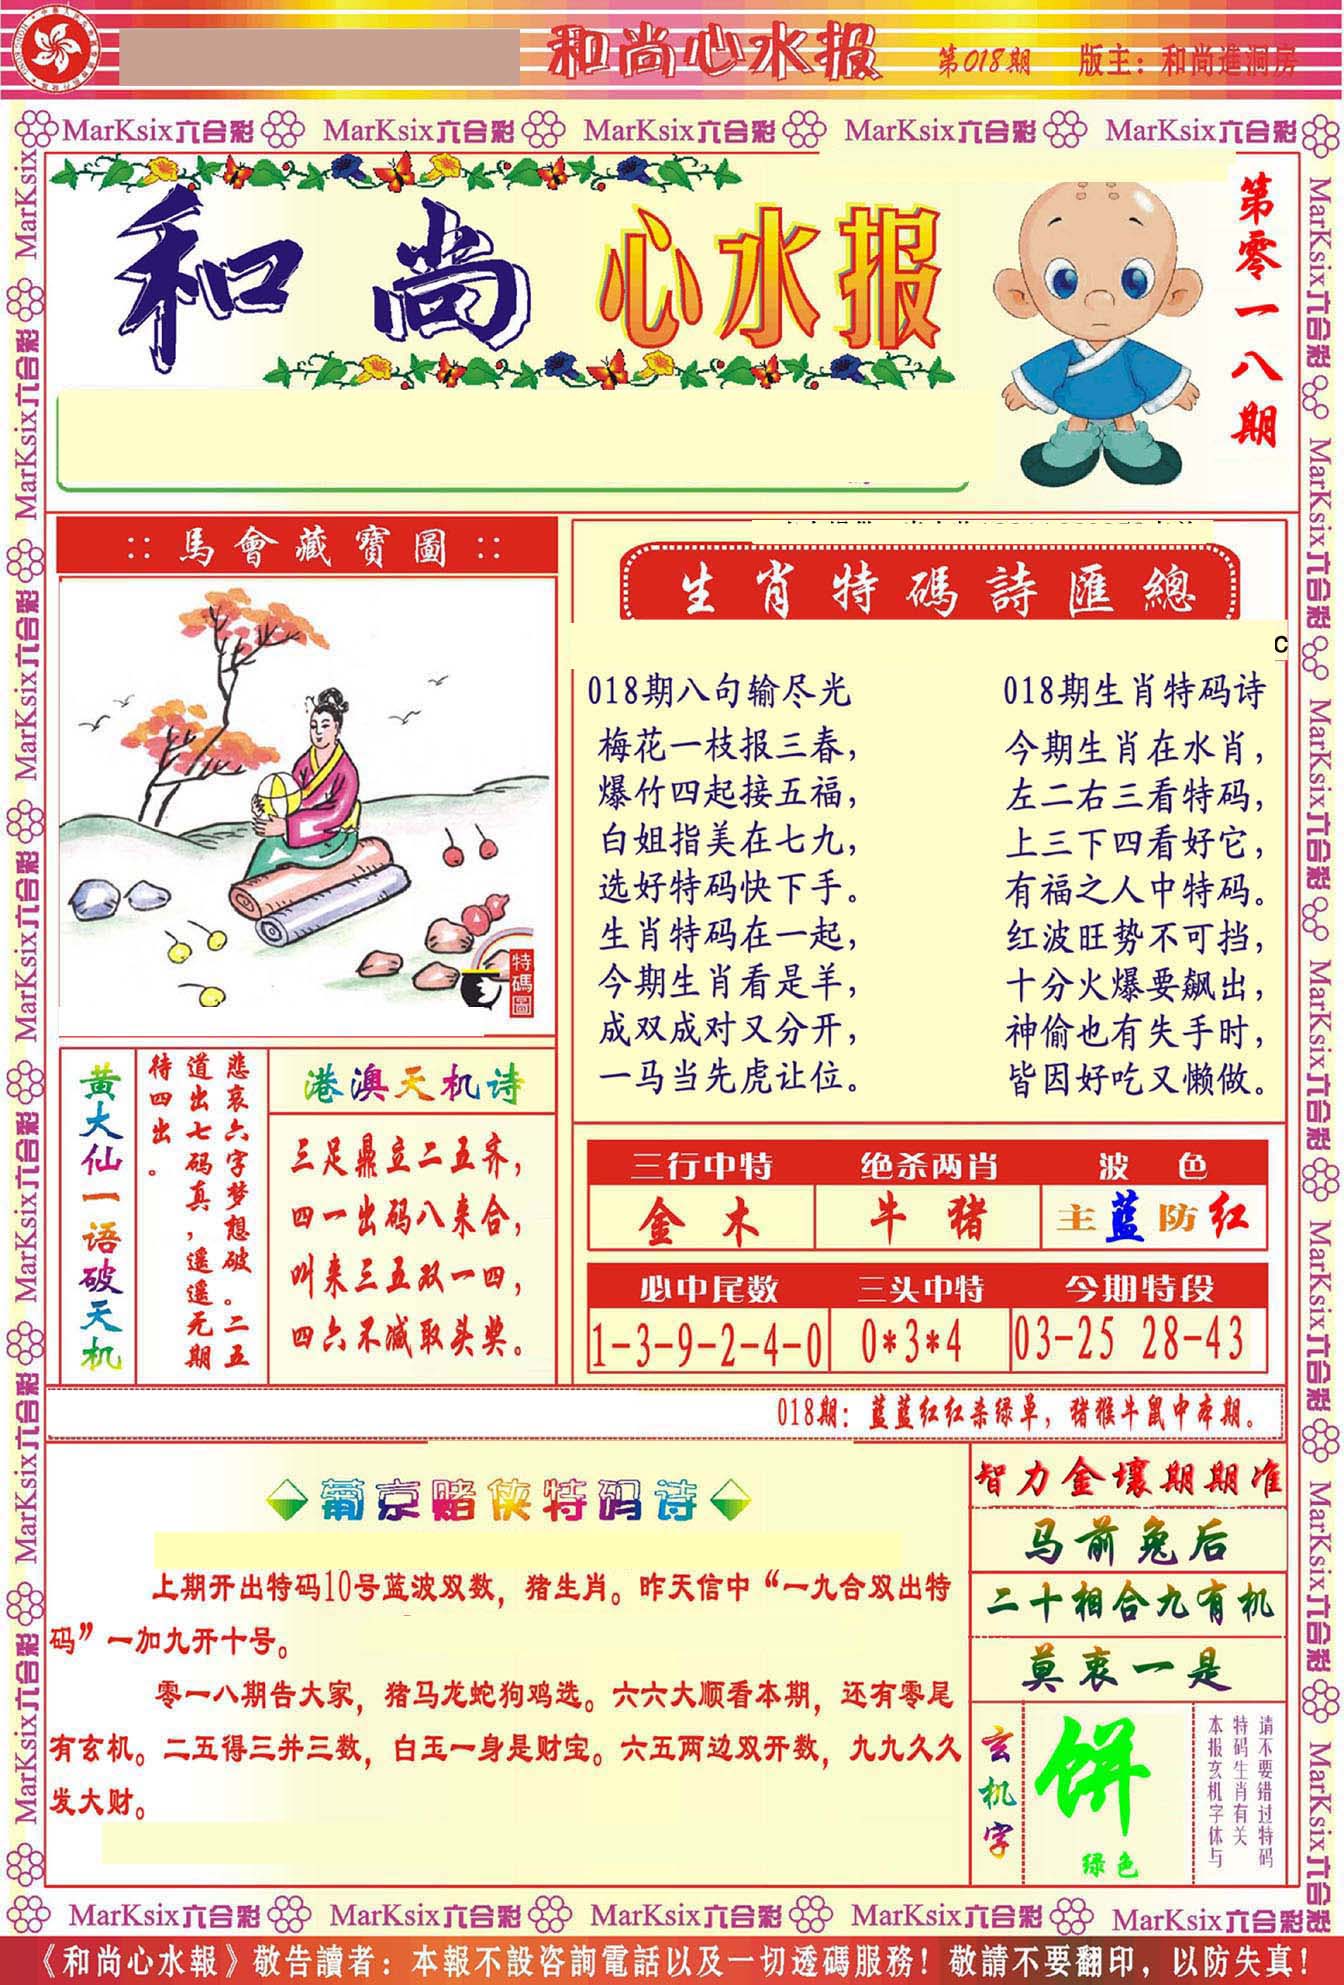 和尚心水报 第018期 版主：和尚進洞房
MarKsix六合彩 MarKsix六合彩 MarKsix六合彩 MarKsix六合彩 MarKsix六合彩
和尚心水报
第零一八期
::馬會藏寶圖::
特碼圖
生肖特碼詩匯總
C
018期八句输尽光
梅花一枝报三春，
爆竹四起接五福，
白姐指美在七九，
选好特码快下手。
生肖特码在一起，
今期生肖看是羊，
成双成对又分开，
一马当先虎让位。
018期生肖特码诗
今期生肖在水肖，
左二右三看特码，
上三下四看好它，
有福之人中特码。
红波旺势不可挡，
十分火爆要飙出，
神偷也有失手时，
皆因好吃又懒做。
黄大仙一语破天机
悲哀六字梦想破。二五
道出七码真，遥遥无期
待四出。
港澳天机诗
三足鼎立二五齐，
四一出码八来合，
叫来三五双一四，
四六不减取头奖。
三行中特 绝杀两肖 波色
金木 牛猪 主蓝防红
必中尾数 三头中特 今期特段
1-3-9-2-4-0 0*3*4 03-25 28-43
018期：蓝蓝红红杀绿单，猪猴牛鼠中本期。
葡京赌侠特码诗
上期开出特码10号蓝波双数，猪生肖。昨天信中“一九合双出特
码”一加九开十号。
零一八期告大家，猪马龙蛇狗鸡选。六六大顺看本期，还有零尾
有玄机。二五得三并三数，白玉一身是财宝。六五两边双开数，九九久久
发大财。
智力金壤期期准
马前兔后
二十相合九有机
莫衷一是
玄机字
饼
绿色
请不要错过特码
特码生肖有关
本报玄机字体与
MarKsix六合彩 MarKsix六合彩 MarKsix六合彩 MarKsix六合彩 MarKsix六合彩
《和尚心水報》敬告讀者：本報不設咨詢電話以及一切透碼服務！敬請不要翻印，以防失真！